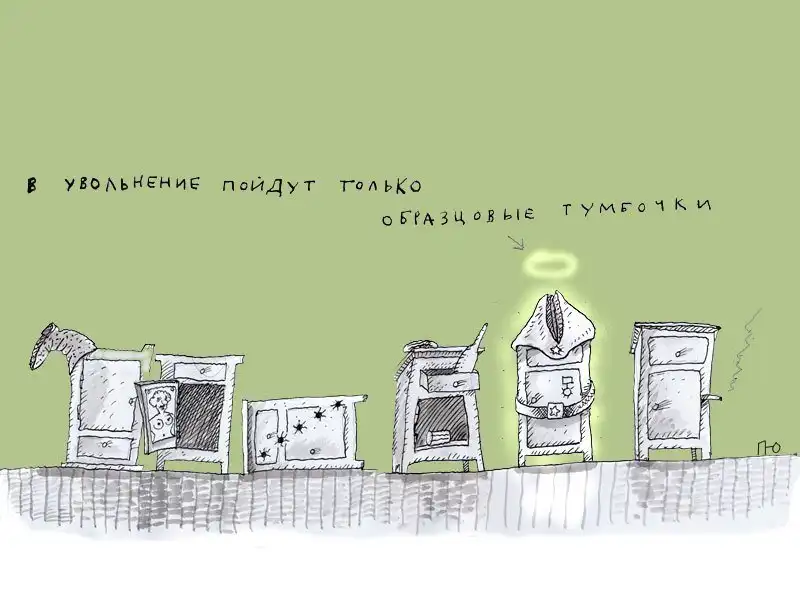 В УВОЛЬНЕНИЕ ПОЙДУТ ТОЛЬКО
ОБРАЗЦОВЫЕ ТУМБОЧКИ
ПЮ